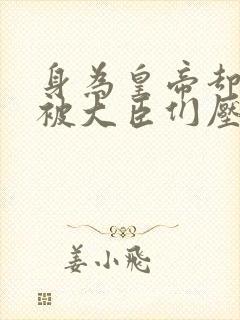 身為皇帝却
被大臣们壓
姜小飛